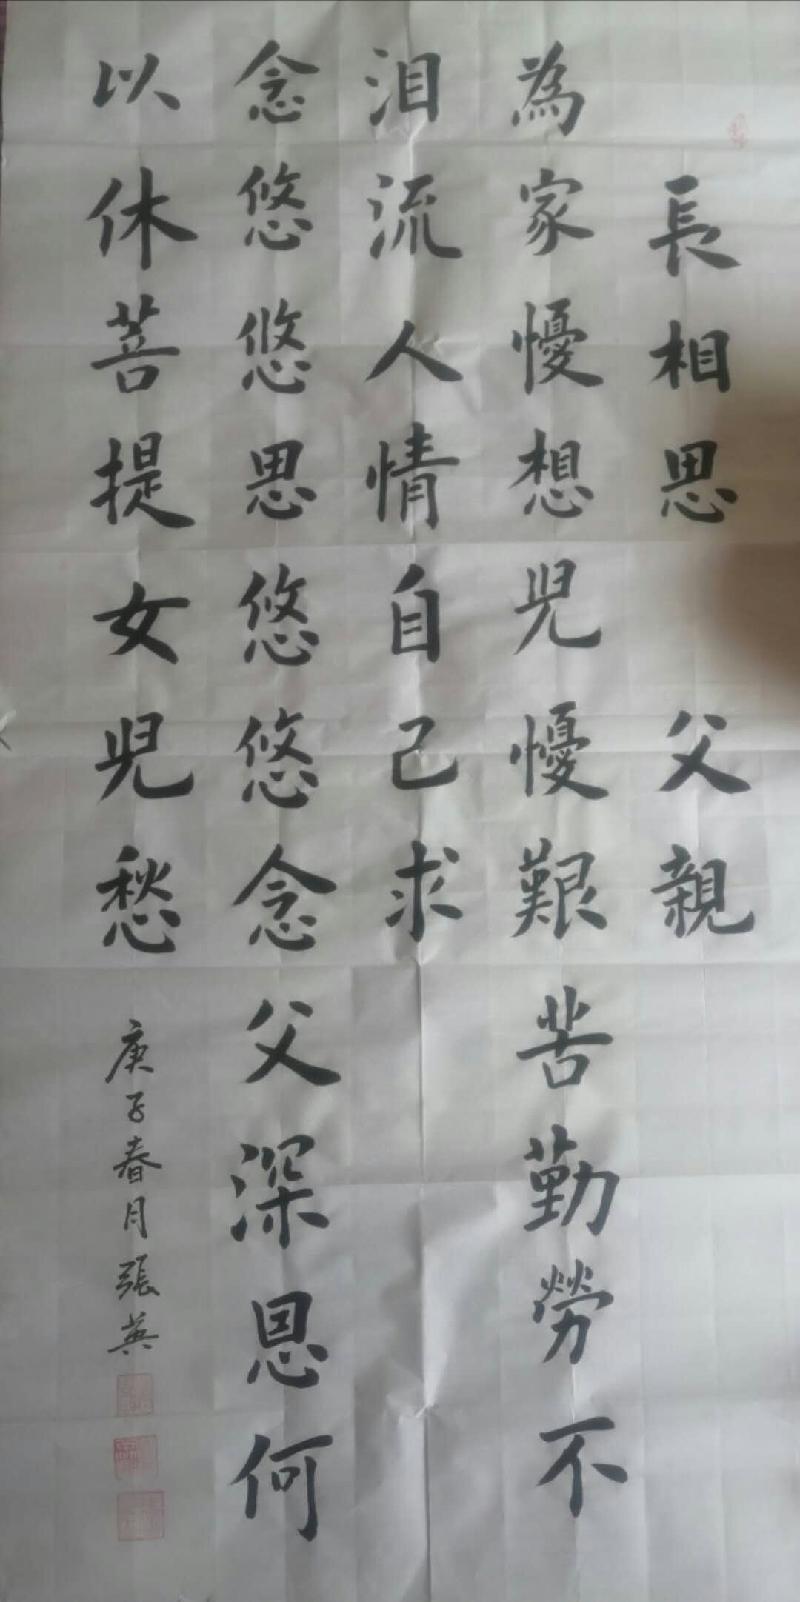 長相思 父親
為家懮想児懮艱苦勤勞不
泪流人情自己求
念悠悠思悠悠念父深恩何
以休菩提女児愁
庚子春月張英